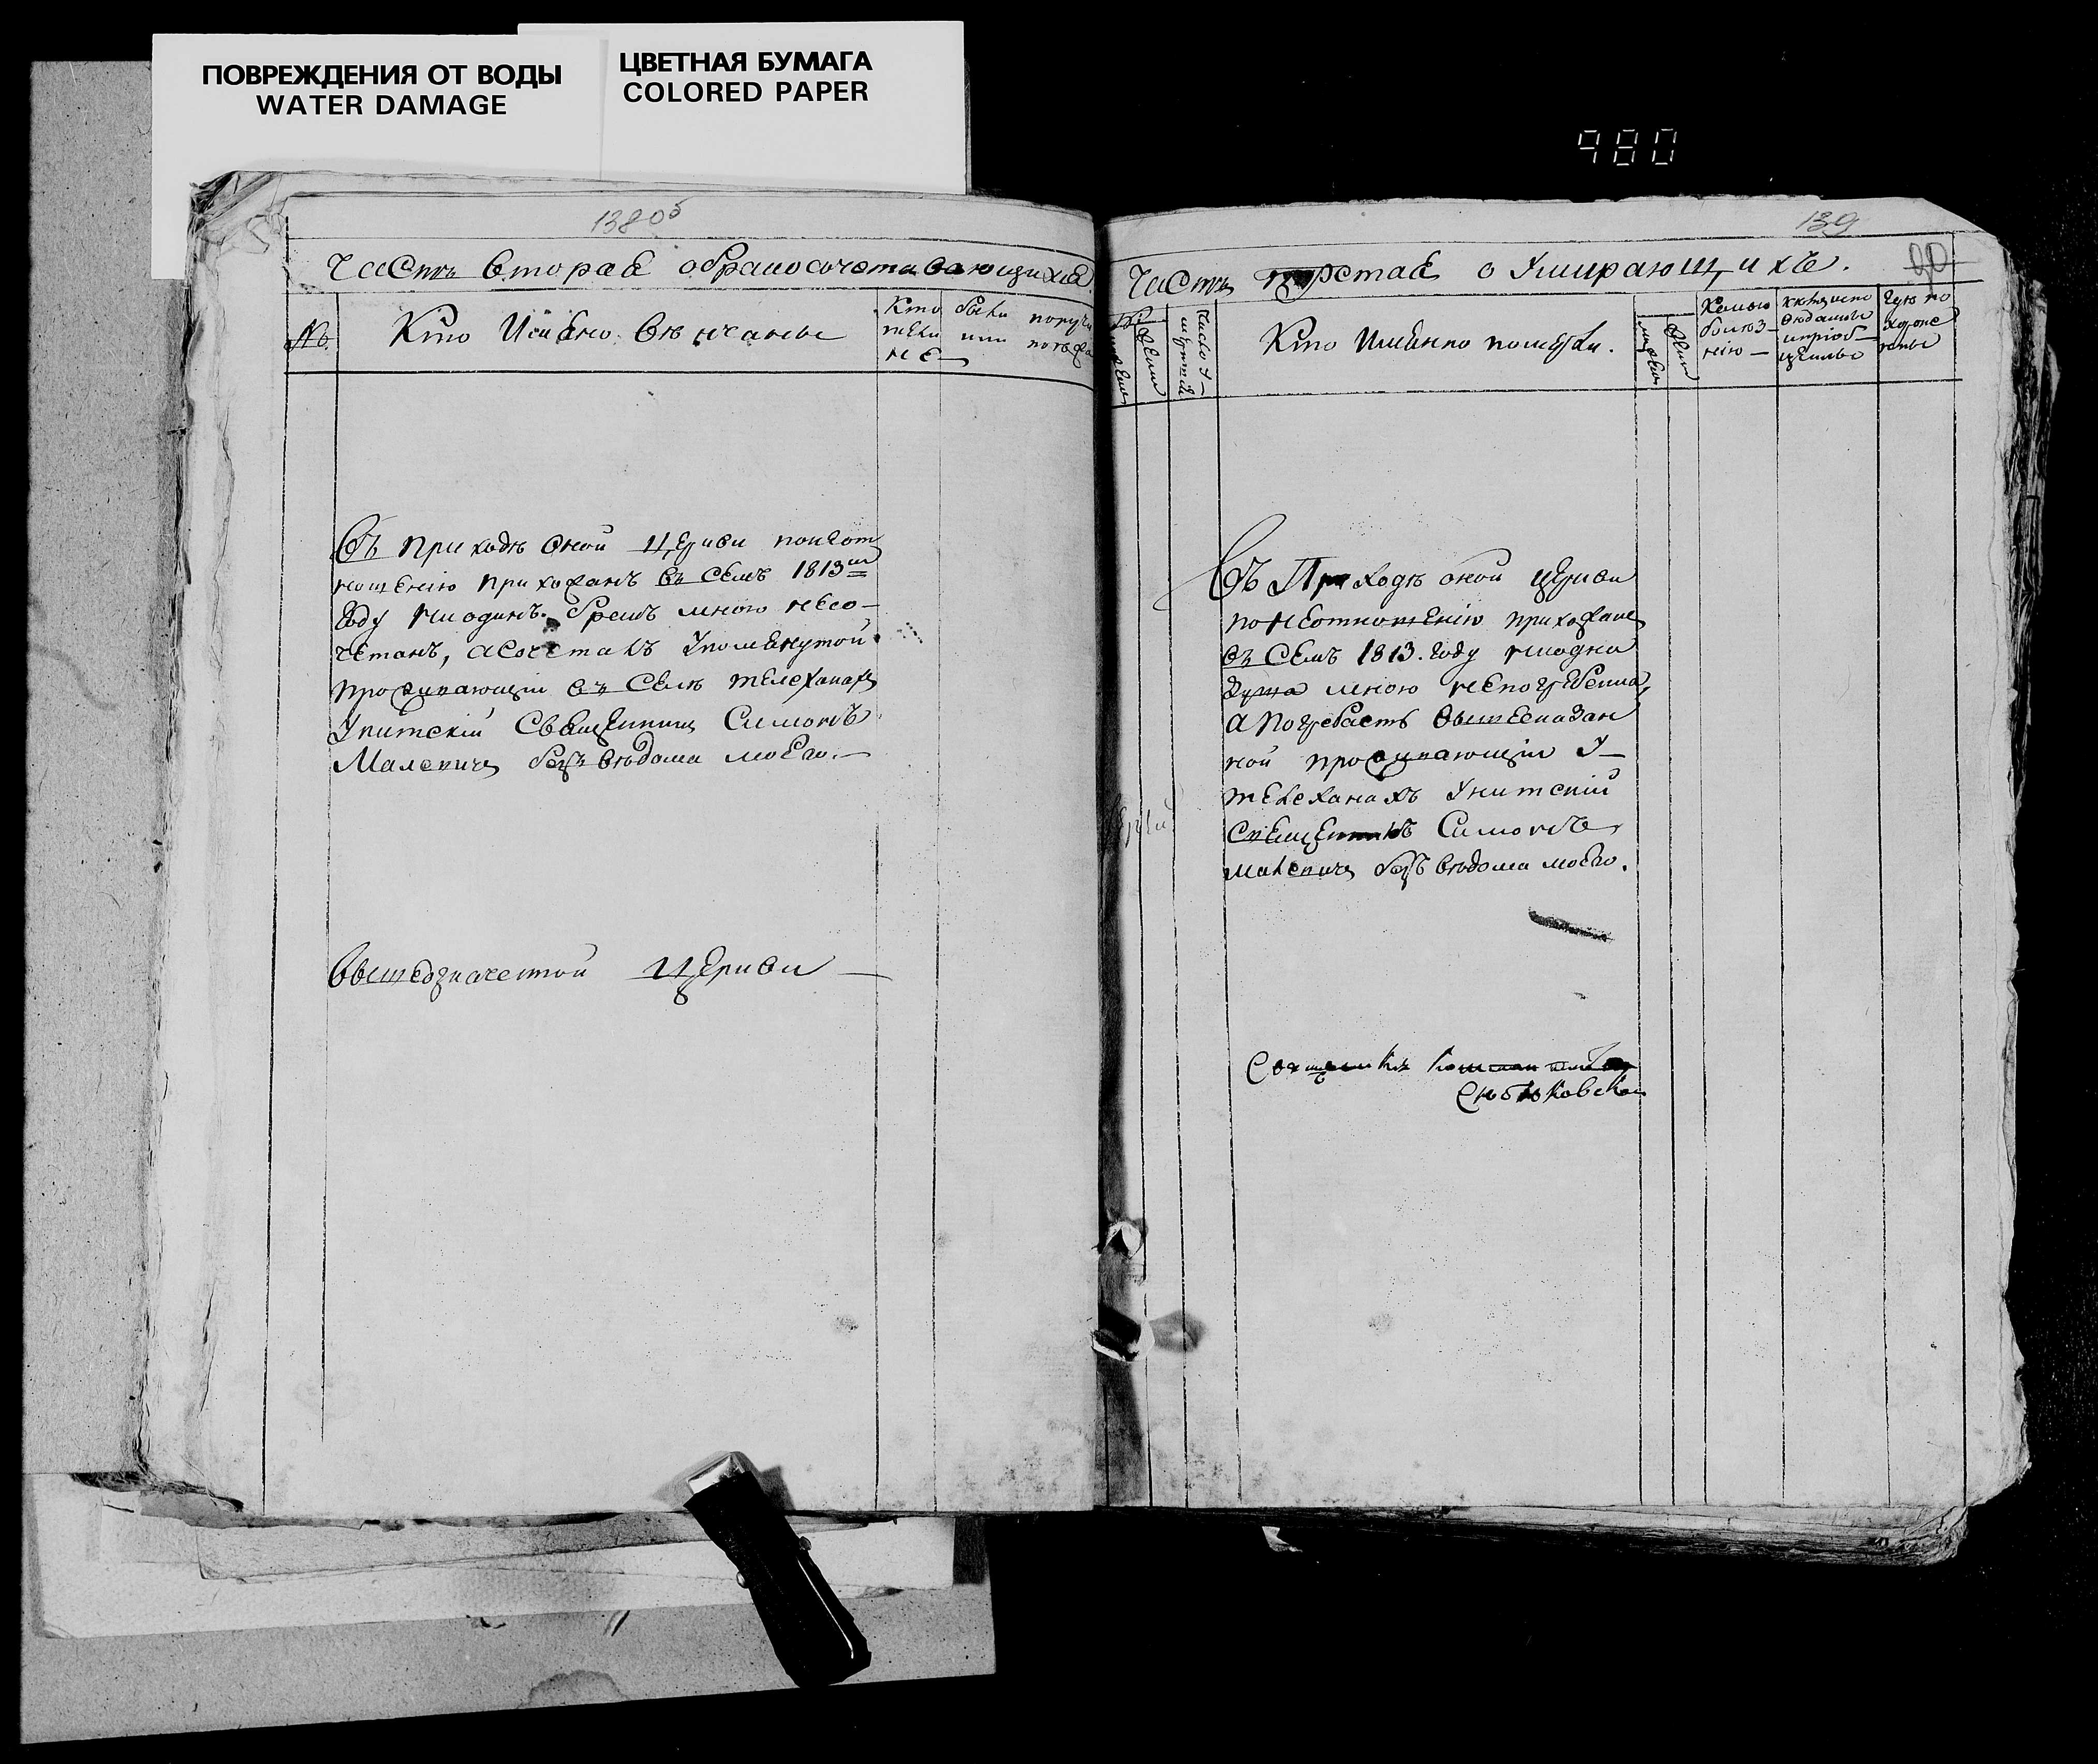 ПОВРЕЖДЕНИЯ ОТ ВОДЫ
WATER DAMAGE
ЦВЕТНАЯ БУМАГА
COLORED PAPER
980
138об
Часть вторая обракосочетавающихся
№
Кто Именно венчаны
Кто были поручи
тели или поезжа
не
Въ приходе оной Церкви понеот
ношению прихожанъ въ семъ 1813м
году ниодинъ бракъ мною несо-
четанъ, асочеталъ упомянутой
проживающий въ селе телеханах
Унитский Священник Симонъ
Малевичъ безъ ведома моего.
Вышеозначенной Церкви
139
90
Часть третая о Умирающихъ.
Число У-
мертв
Кто Именно померли.
Какою
болез-
нию
исповеданы
и приоб-
щены
Где по
хоро
нены
Въ Приходе оной церкви
по неотношению прихожан
въ семъ 1813. году ниодна
душа мною непогребенна,
а погребаетъ вышесказан
ной проживающий У
телеханахъ Унитский
священникъ Симонъ
малевичъ безъ ведома моего.
Священникъ